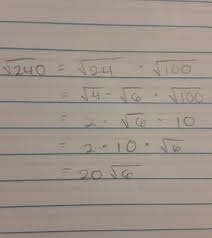 √240 = √24 · √100
= √4 · √6 · √100
= 2 · √6 · 10
= 2 · 10 · √6
= 20√6